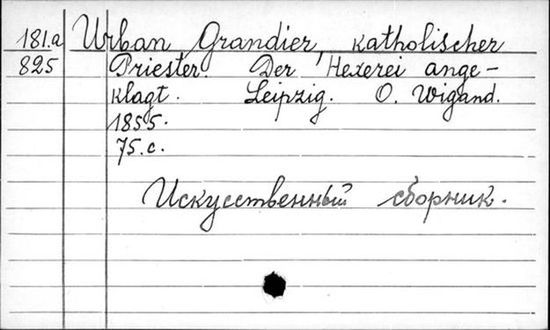 181.a Urban Grandier, katholischer
825 Priester. Der Hexerei ange-
klagt. Leipzig. O. Wigand.
1855.
75.c.
Искусственный сборник.